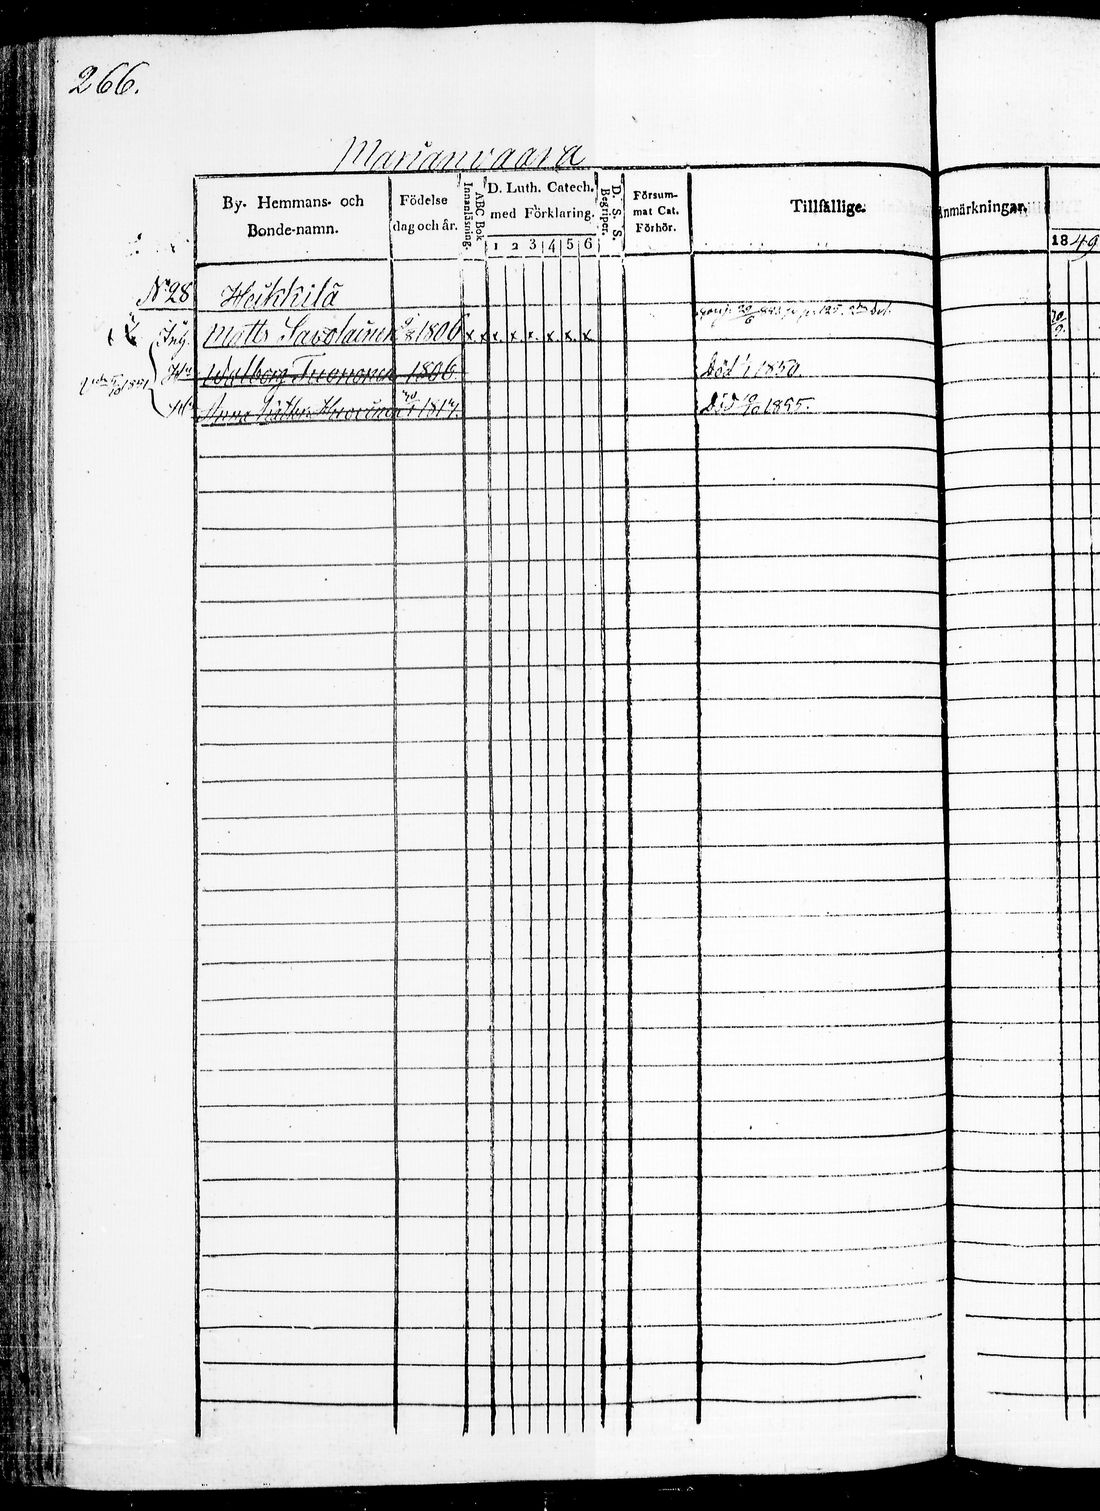 266.
Marianvaara
By- Hemmans- och Bonde-namn.
Födelse dag och år.
Innanläsning.
ABC Bok
D. Luth. Catech. med Förklaring.
1 2 3 4 5 6
D. S. S. Begriper.
Försum- mat Cat. Förhör.
Tillfällige.
Anmärkningar.
1849
No 28 Heikkilä
Inh. Matts Savolainen 1806 x x x x x x x x
Hu Walborg 1806. Död 1850.
Hu Anna 1817. Död 1855.